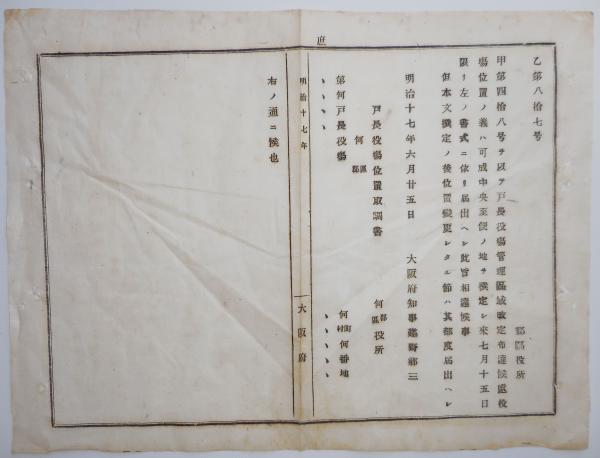 府
乙第八拾七号
郡區役所
甲第四拾八号ヲ以テ戸長役場管理區域改定布達候處役
場位置ノ義ハ可成中央至便ノ地ヲ撰定シ来七月十五日
限リ左ノ書式ニ依リ届出ヘシ此旨相達候事
但本文撰定ノ後位置變更シタル節ハ其都度届出ヘシ
明治十七年六月廿五日 大阪府知事建野郷三
戸長役場位置取調書
何區郡 何郡區役所
第何戸長役場 何町村何番地
明治十七年 大阪府
右ノ通ニ候也